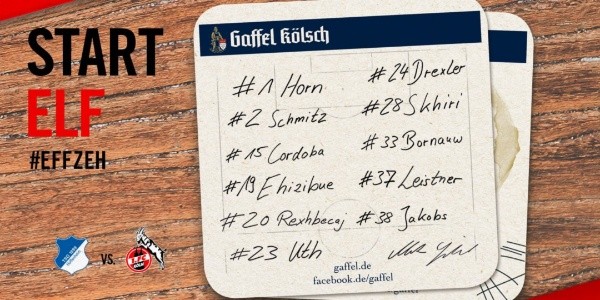 START
ELF
#EFFZEH
VS.
Gaffel Kölsch
#1 Horn
#2 Schmitz
#15 Cordoba
#19 Ehizibue
#20 Rexhbecaj
#23 Uth
#24 Drexler
#28 Skhiri
#33 Bornauw
#37 Leistner
#38 Jakobs
gaffel.de
facebook.de/gaffel